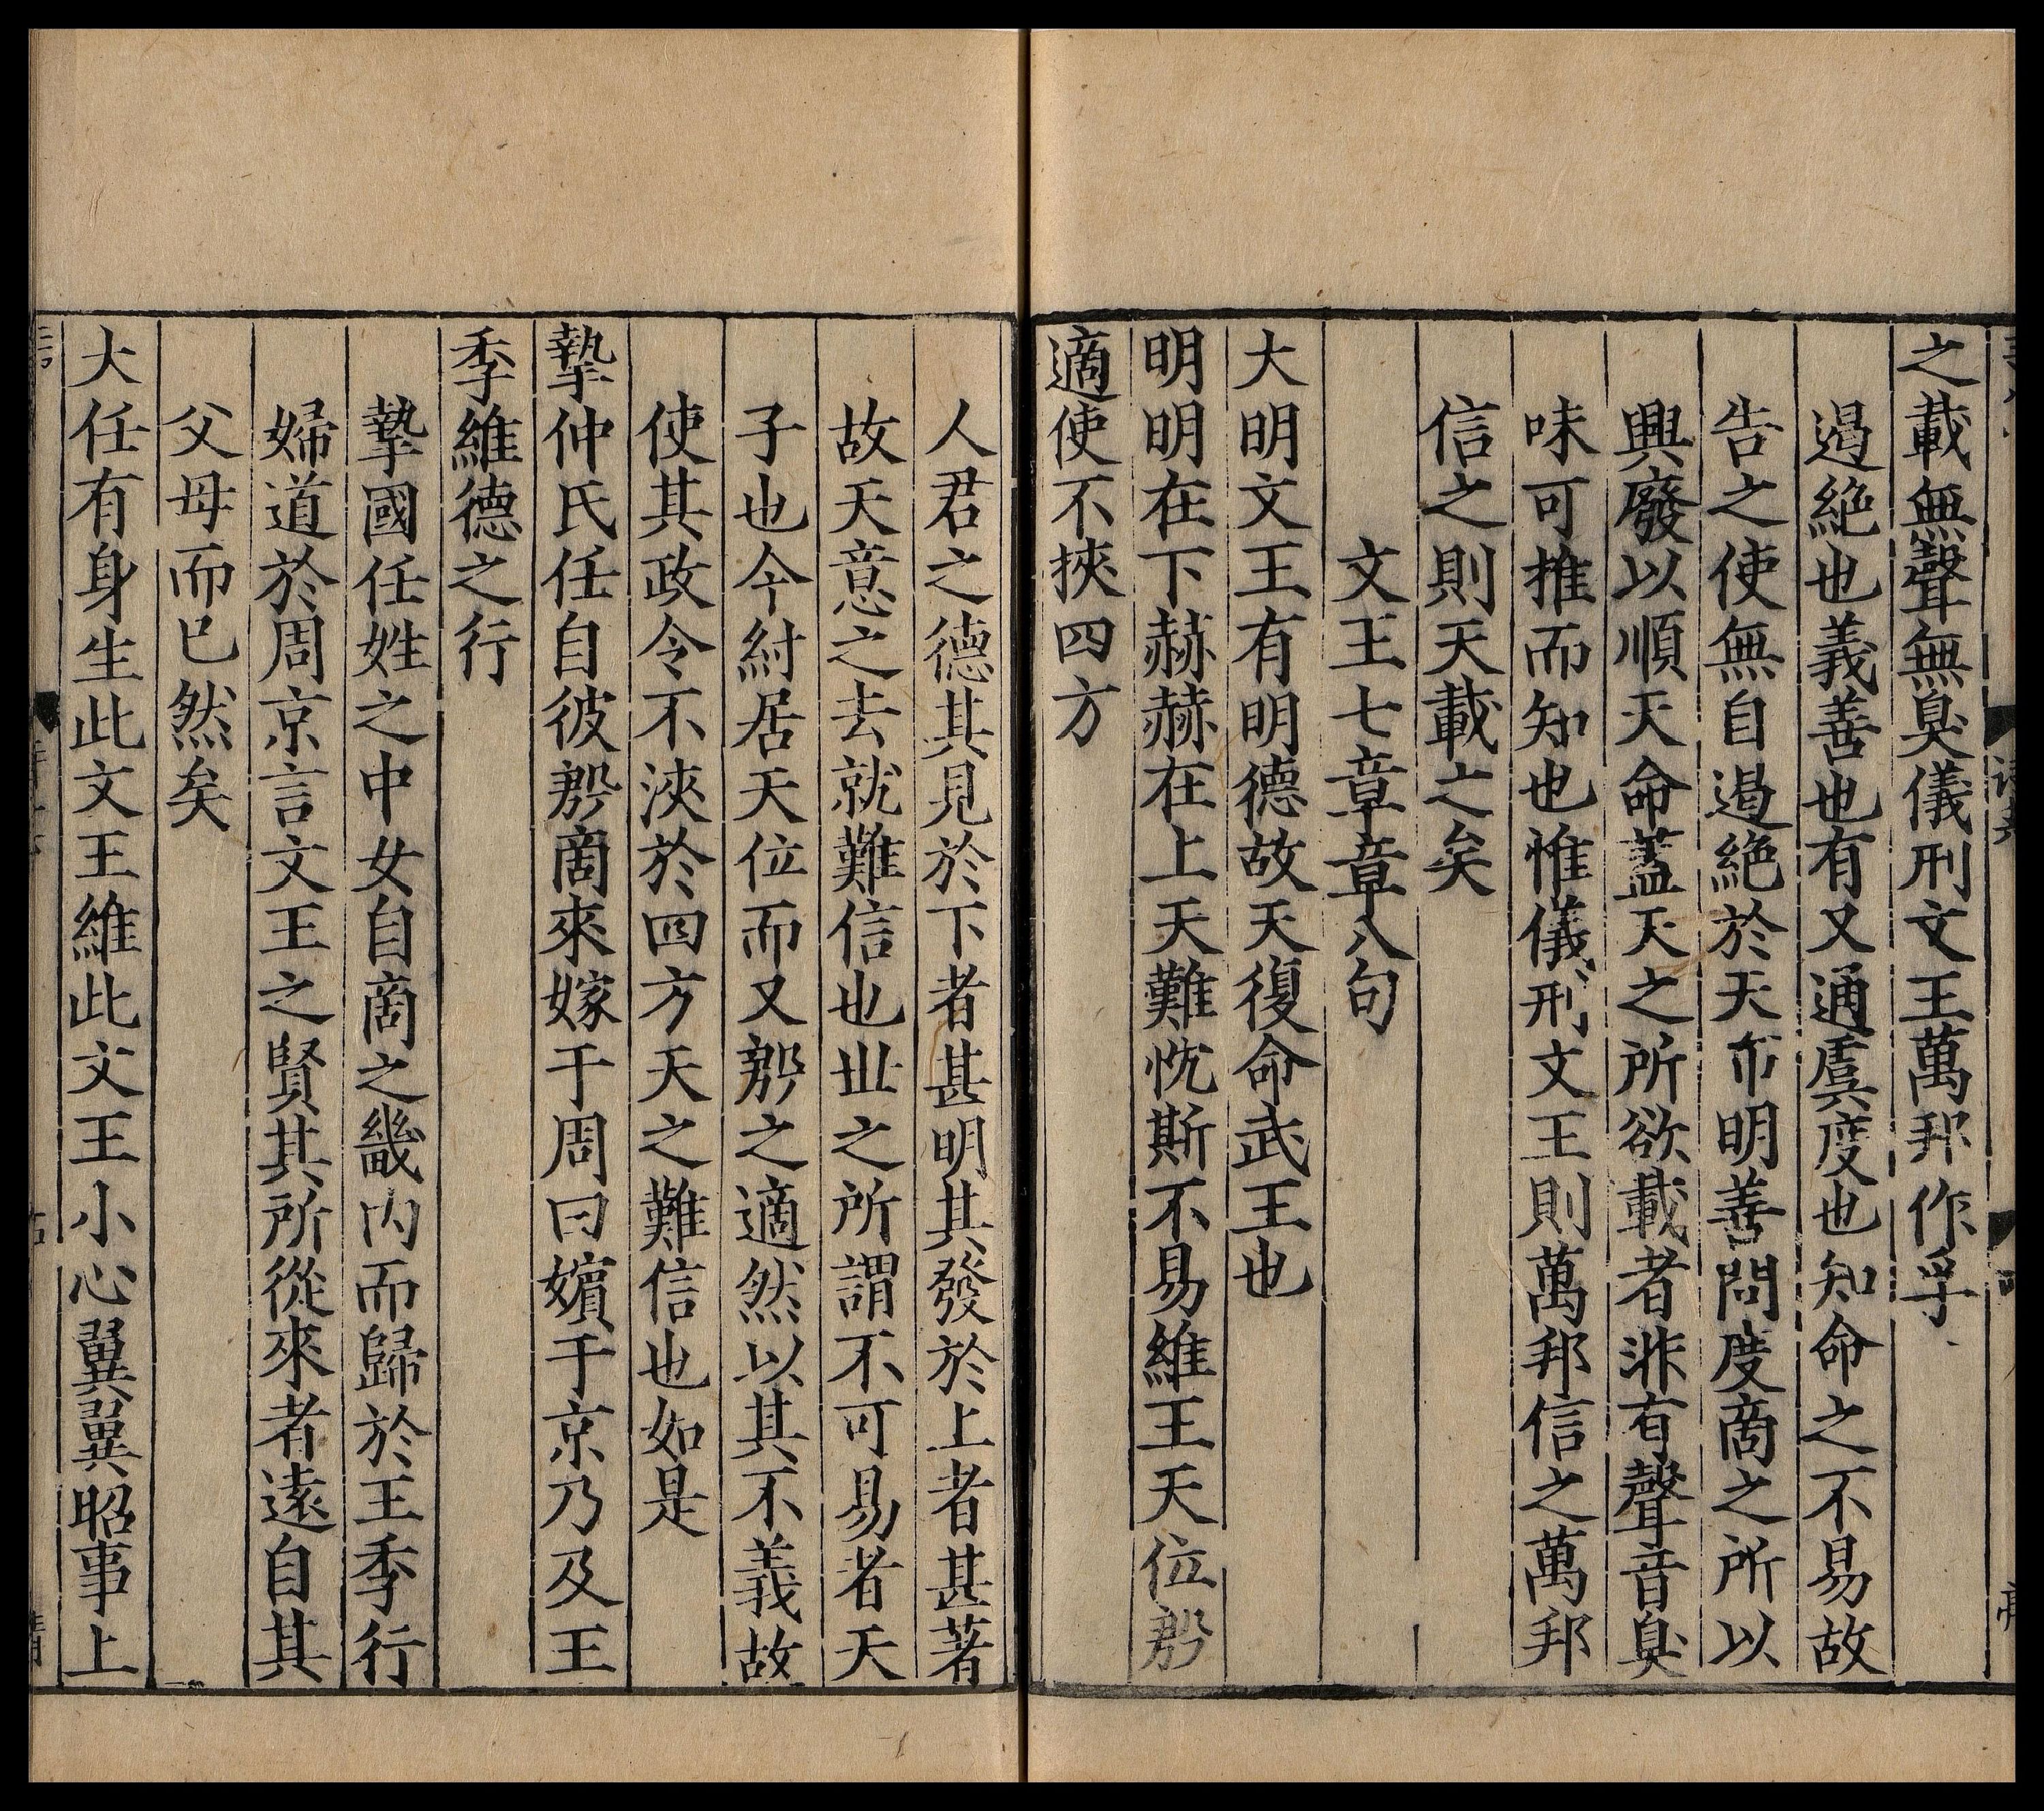 之載無聲無臭儀刑文王萬邦作孚
遏絶也義善也有又通虞度也知命之不易故
告之使無自遏絶於天布明善問度啇之所以
興廢以順天命蓋天之所欲載者非有聲音臭
味可推而知也惟儀刑文王則萬邦信之萬邦
信之則天載之矣
文王七章章八句
大明文王有明德故天復命武王也
明明在下赫赫在上天難忱斯不易維王天位殷
適使不挾四方
人君之德其見於下者甚明其發於上者甚著
故天意之去就難信也丗之所謂不可易者天
子也今紂居天位而又殷之適然以其不義故
使其政令不浹於四方天之難信也如是
摯仲氏任自彼殷啇來嫁于周曰嬪于京乃及王
季維德之行
摯國任姓之中女自啇之畿内而歸於王季行
婦道於周京言文王之賢其所從來者遠自其
父母而已然矣
大任有身生此文王維此文王小心翼翼昭事上